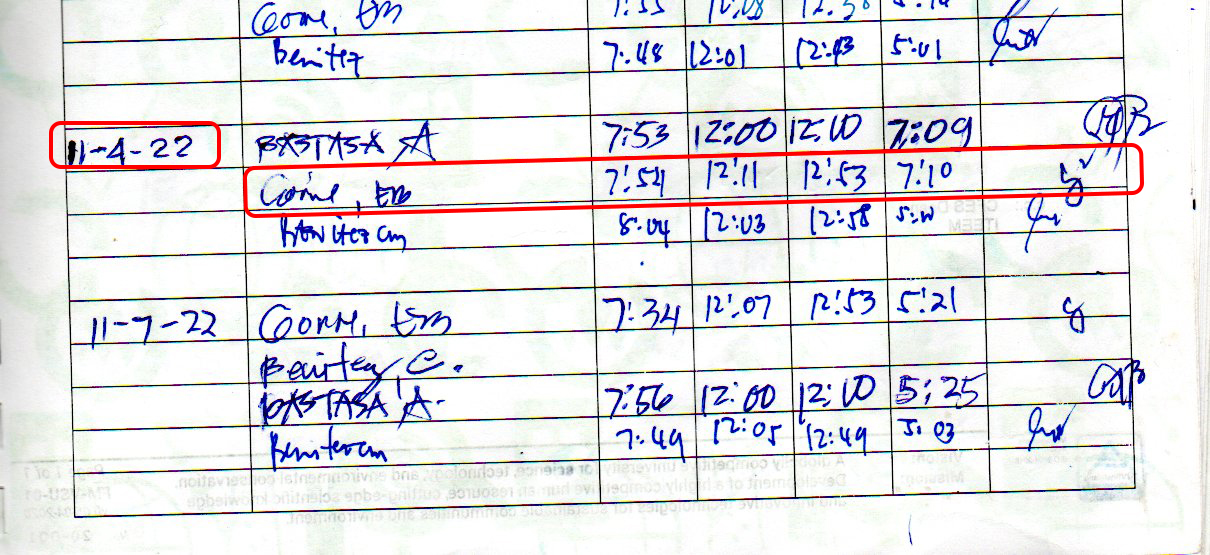 Gorne, EB 7:55 12:08 12:58
Benitez 7:48 12:01 12:43 5:01
11-4-22 BASTASA A 7:53 12:00 12:10 7:09
Gorne, EB 7:54 12:11 12:53 7:10
Benitez cm 8:04 12:03 12:58 5:10
11-7-22 Gorne, EB 7:34 12:07 12:53 5:21
Benitez, C.
BASTASA, A. 7:56 12:00 12:10 5:25
Benitez cm 7:49 12:05 12:49 5:03